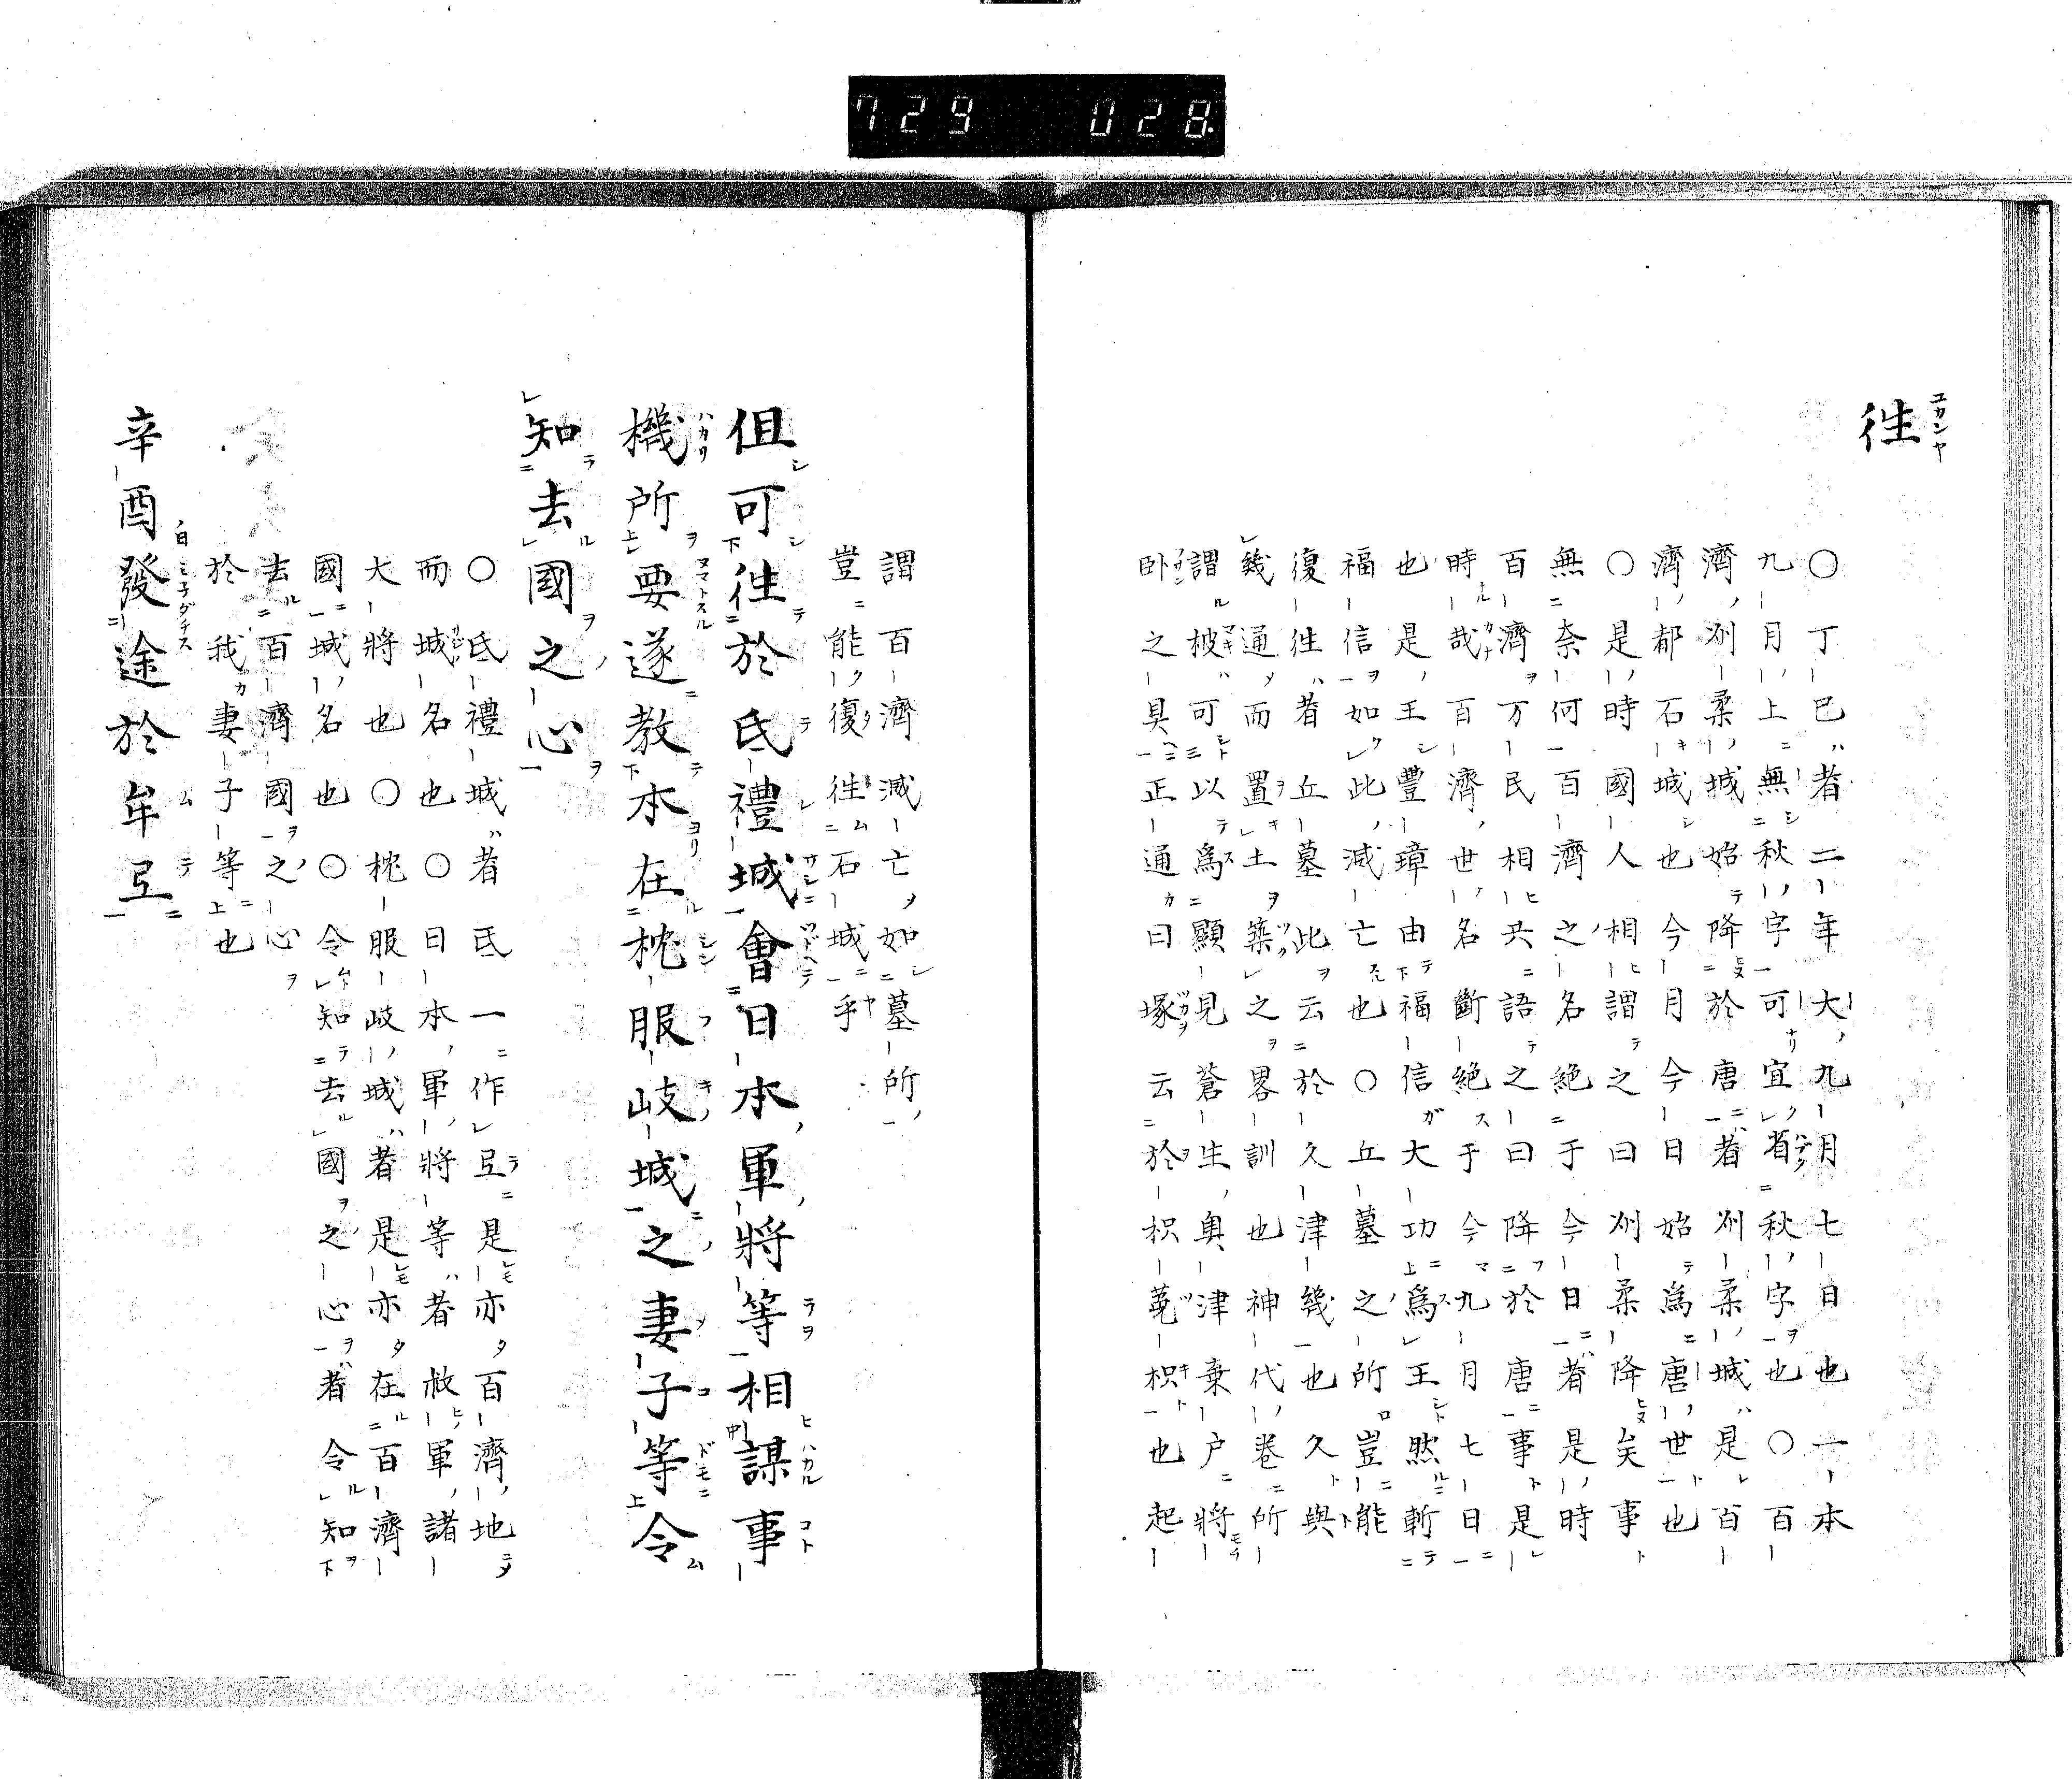 729 028
徃
〇丁巳者二年大九月七日也一本
九月上無秋字可宜省秋字也〇百
濟州柔城始降於唐者州柔城是百
濟都石城也今月今日始爲唐世也
〇是時國人相謂之曰州柔降矣事
無奈何百濟之名絶于今日者是時
百濟万民相共語之曰降於唐事是
時哉百濟世名斷絶于今九月七日
也是王豐璋由福信大功爲王然斬
福信如此滅亡也〇丘墓之所豈能
復徃者丘墓此云於久津幾也久與
幾通而置土築之畧訓也神代卷所
謂柀可以爲顯見蒼生奥津棄戸將
卧之具正通曰塚云於枳菟枳也起
謂百濟滅亡如墓所
豈能復徃石城乎
但可徃於氐禮城會日本軍將等相謀事
機所要遂教本在枕服岐城之妻子等令
知去國之心
〇氐禮城者氐一作弖是亦百濟地
而城名也〇日本軍將等者救軍諸
大將也〇枕服岐城者是亦在百濟
國城名也〇令知去國之心者令知
去百濟國之心
於我妻子等也
辛酉發途於牟弖